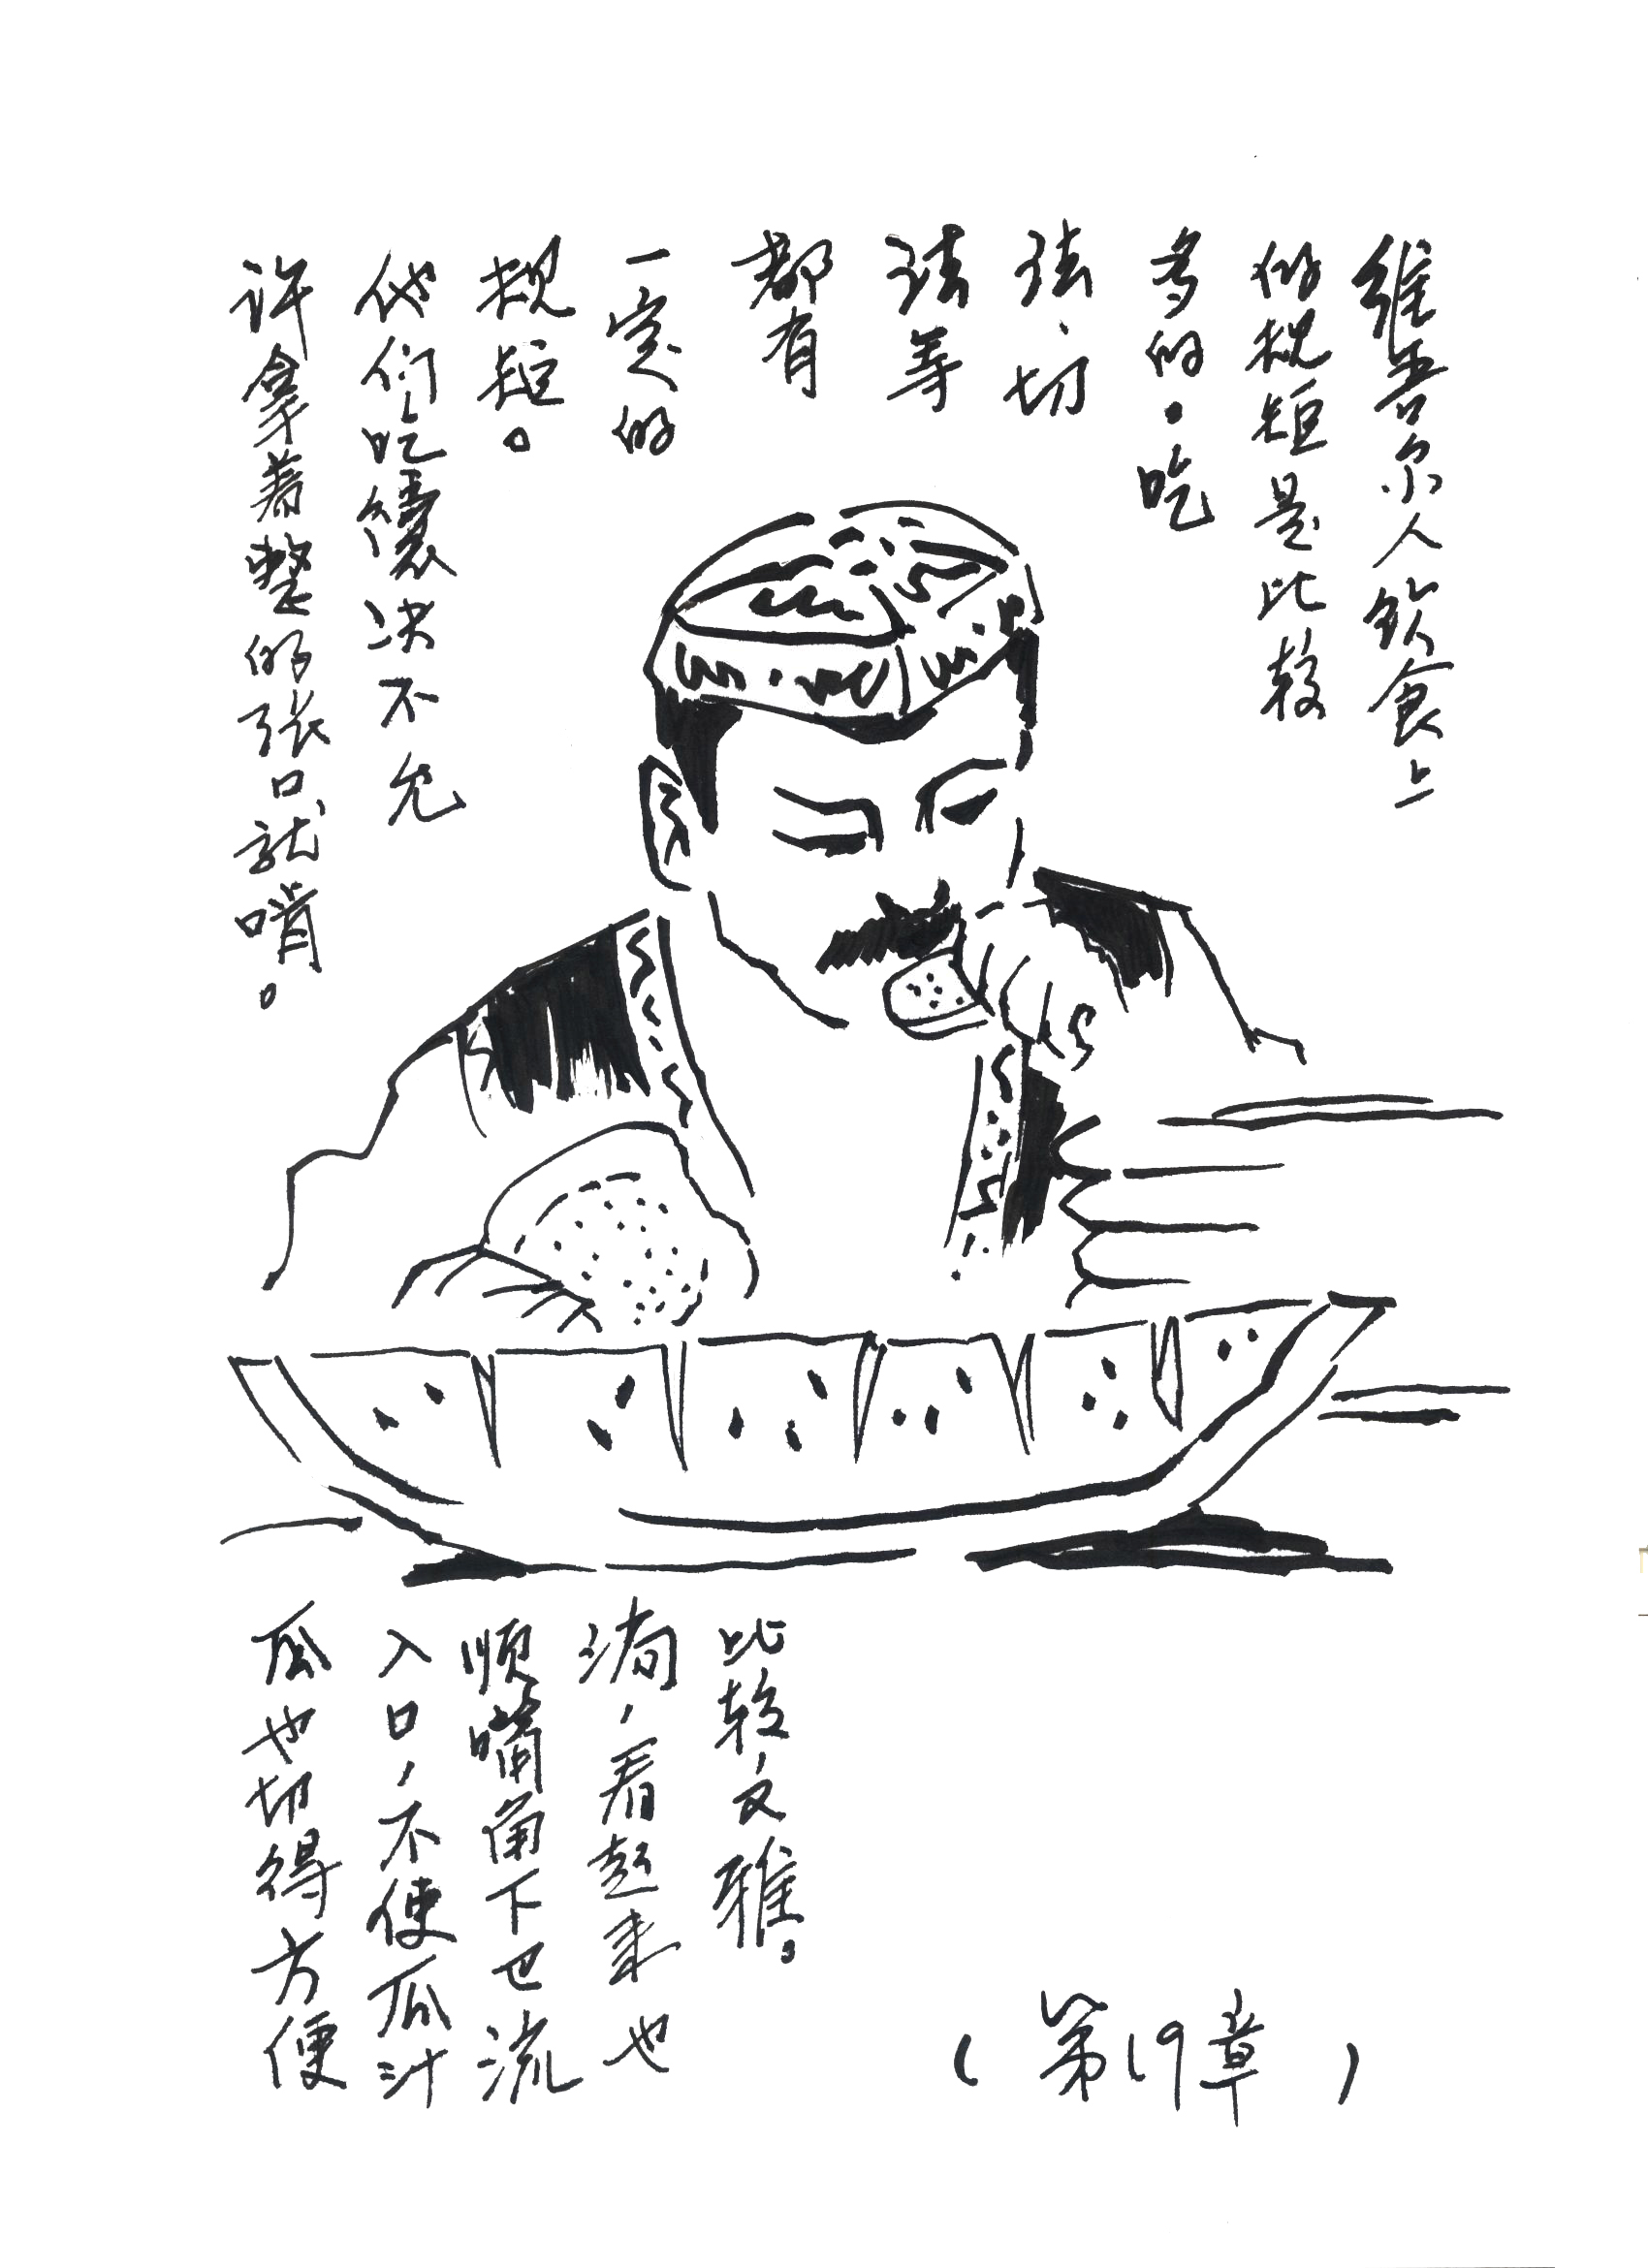 维吾尔人饮食上
的规矩是比较
多的。吃
法、切
法等
都有
一定的
规矩。
他们吃馕决不允
许拿着整的张口就啃。
瓜也切得方便
入口，不使瓜汁
顺嘴角下巴流
淌，看起来也
比较文雅。
（第19章）